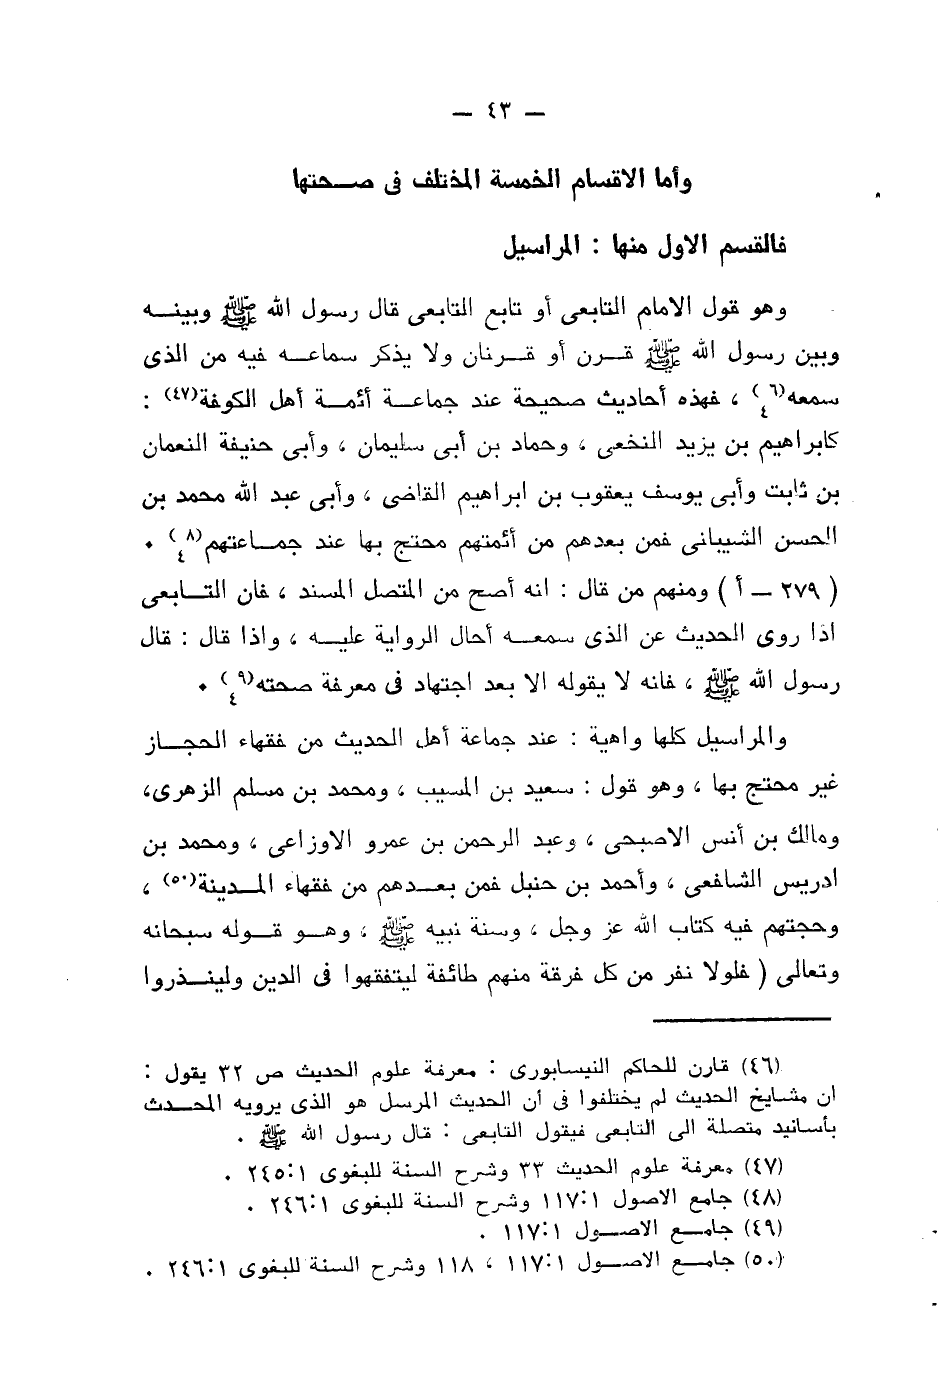 — ٤٣ —
وأما الاقسام الخمسة المختلف فى صـــحتها
فالقسم الاول منها : المراسيل
وهو قول الامام التابعى أو تابع التابعى قال رسول الله ﷺ وبينـــه
وبين رسول الله ﷺ قـــرن أو قـــرنان ولا يذكر سماعـــه فيه من الذى
سمعه(٤٦) ، فهذه أحاديث صحيحة عند جماعـــة أئمـــة أهل الكوفة(٤٧) :
كابراهيم بن يزيد النخعى ، وحماد بن أبى سليمان ، وأبى حنيفة النعمان
بن ثابت وأبى يوسف يعقوب بن ابراهيم القاضى ، وأبى عبد الله محمد بن
الحسن الشيبانى فمن بعدهم من أئمتهم محتج بها عند جمـــاعتهم(٤٨) .
( ٢٧٩ — أ ) ومنهم من قال : انه أصح من المتصل المسند ، فان التـــابعى
اذا روى الحديث عن الذى سمعـــه أحال الرواية عليـــه ، واذا قال : قال
رسول الله ﷺ ، فانه لا يقوله الا بعد اجتهاد فى معرفة صحته(٤٩) .
والمراسيل كلها واهية : عند جماعة أهل الحديث من فقهاء الحجـــاز
غير محتج بها ، وهو قول : سعيد بن المسيب ، ومحمد بن مسلم الزهرى،
ومالك بن أنس الاصبحى ، وعبد الرحمن بن عمرو الاوزاعى ، ومحمد بن
ادريس الشافعى ، وأحمد بن حنبل فمن بعـــدهم من فقهاء المـــدينة(٥٠) ،
وحجتهم فيه كتاب الله عز وجل ، وسنة نبيه ﷺ ، وهـــو قـــوله سبحانه
وتعالى ( فلولا نفر من كل فرقة منهم طائفة ليتفقهوا فى الدين ولينـــذروا
(٤٦) قارن للحاكم النيسابورى : معرفة علوم الحديث ص ٣٢ يقول :
ان مشايخ الحديث لم يختلفوا فى أن الحديث المرسل هو الذى يرويه المحـــدث
بأسانيد متصلة الى التابعى فيقول التابعى : قال رسول الله ﷺ .
(٤٧) معرفة علوم الحديث ٣٣ وشرح السنة للبغوى ٢٤٥:١ .
(٤٨) جامع الاصول ١١٧:١ وشرح السنة للبغوى ٢٤٦:١ .
(٤٩) جامـــع الاصـــول ١١٧:١ .
(٥٠) جامـــع الاصـــول ١١٧:١ ، ١١٨ وشرح السنة للبغوى ٢٤٦:١ .